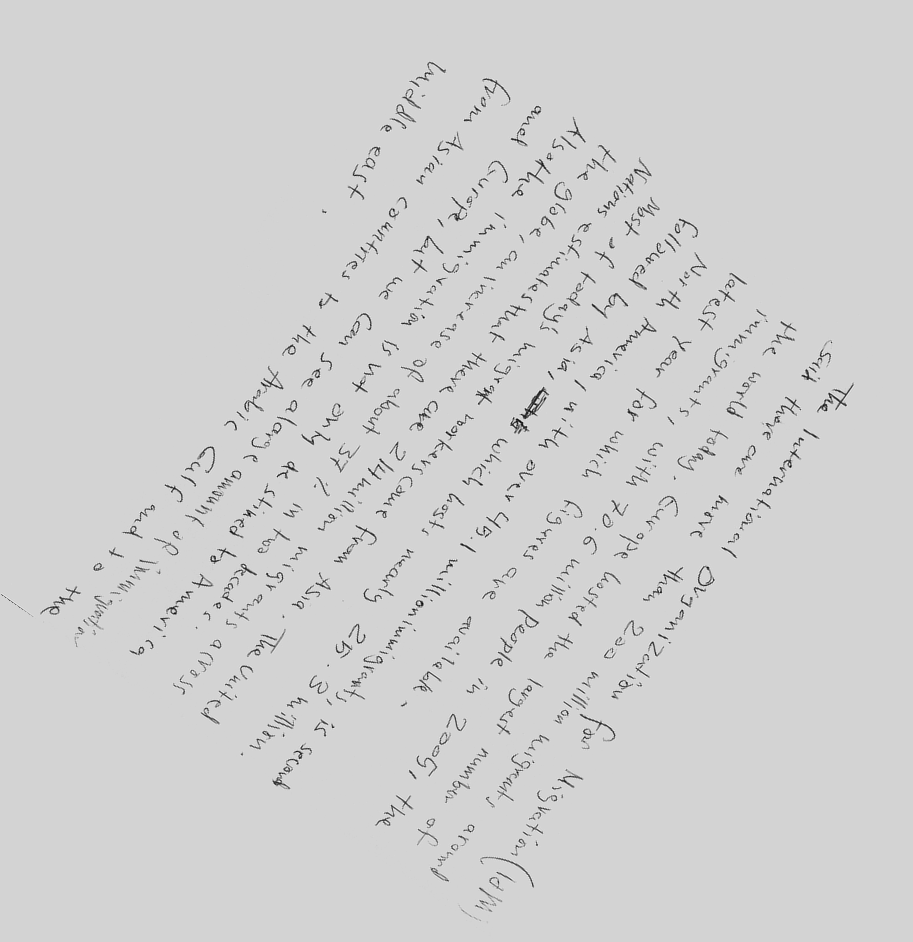 The International Organization for Migration (IOM)
said there are more than 200 million migrants around
the world today. Europe hosted the largest number of
immigrants, with 70.6 million people in 2005, the
latest year for which figures are available.
North America, with over 45.1 million immigrants, is second
followed by Asia, which hosts nearly 25.3 million.
Most of today's migrant workers come from Asia. The United
Nations estimates that there are 214 million migrants across
the globe, an increase of about 37% in two decades.
Also the immigration is not only destined to America
and Europe, but we can see a large amount of immigration
from Asian countries to the Arabic Gulf and to the
middle east.